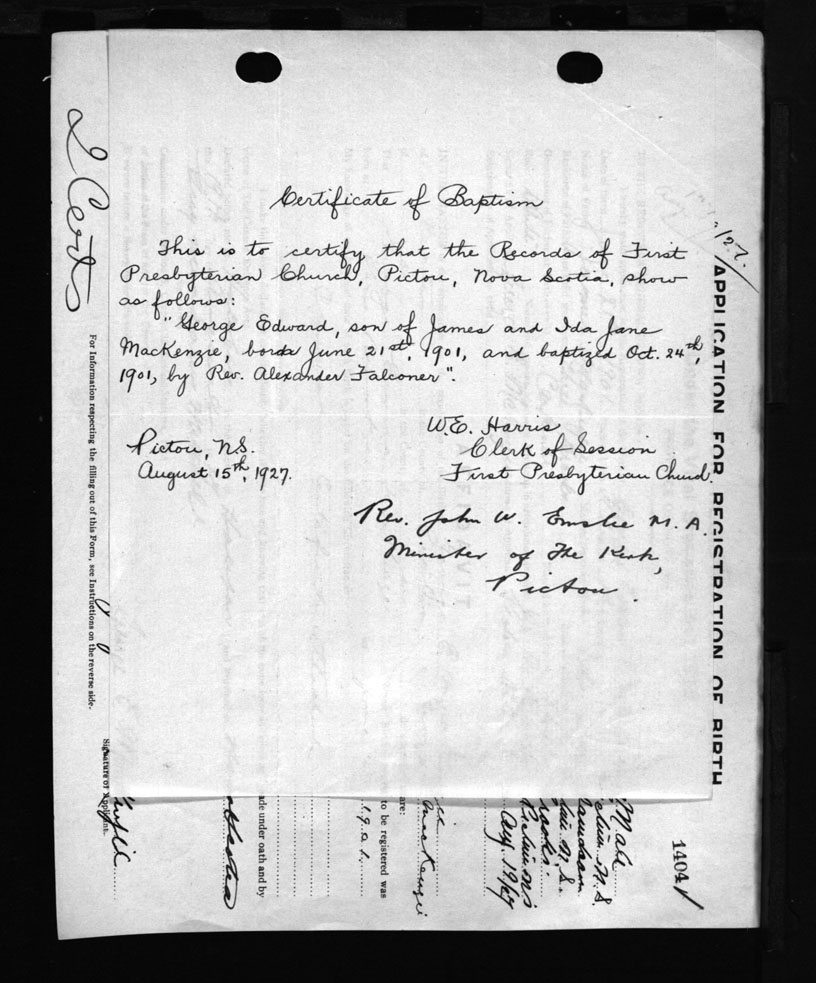 Certificate of Baptism
This is to certify that the Records of First
Presbyterian Church, Pictou, Nova Scotia, show
as follows:
"George Edward, son of James and Ida Jane
MacKenzie, born June 21st, 1901, and baptized Oct. 24th,
1901, by Rev. Alexander Falconer".
W.E. Harris
Pictou, N.S.
Clerk of Session
August 15th, 1927.
First Presbyterian Church.
Rev. John W. Emslie M.A.
Minister of The Kirk,
Pictou.
2 Certs
For Information respecting the filling out of this Form, see Instructions on the reverse side.
Signature of Applicant.
/27.
APPLICATION FOR REGISTRATION OF BIRTH
1404
Male
N.S.
N.S.
Aug 19/27
MacKenzie
are:
to be registered was
1901
ade under oath and by